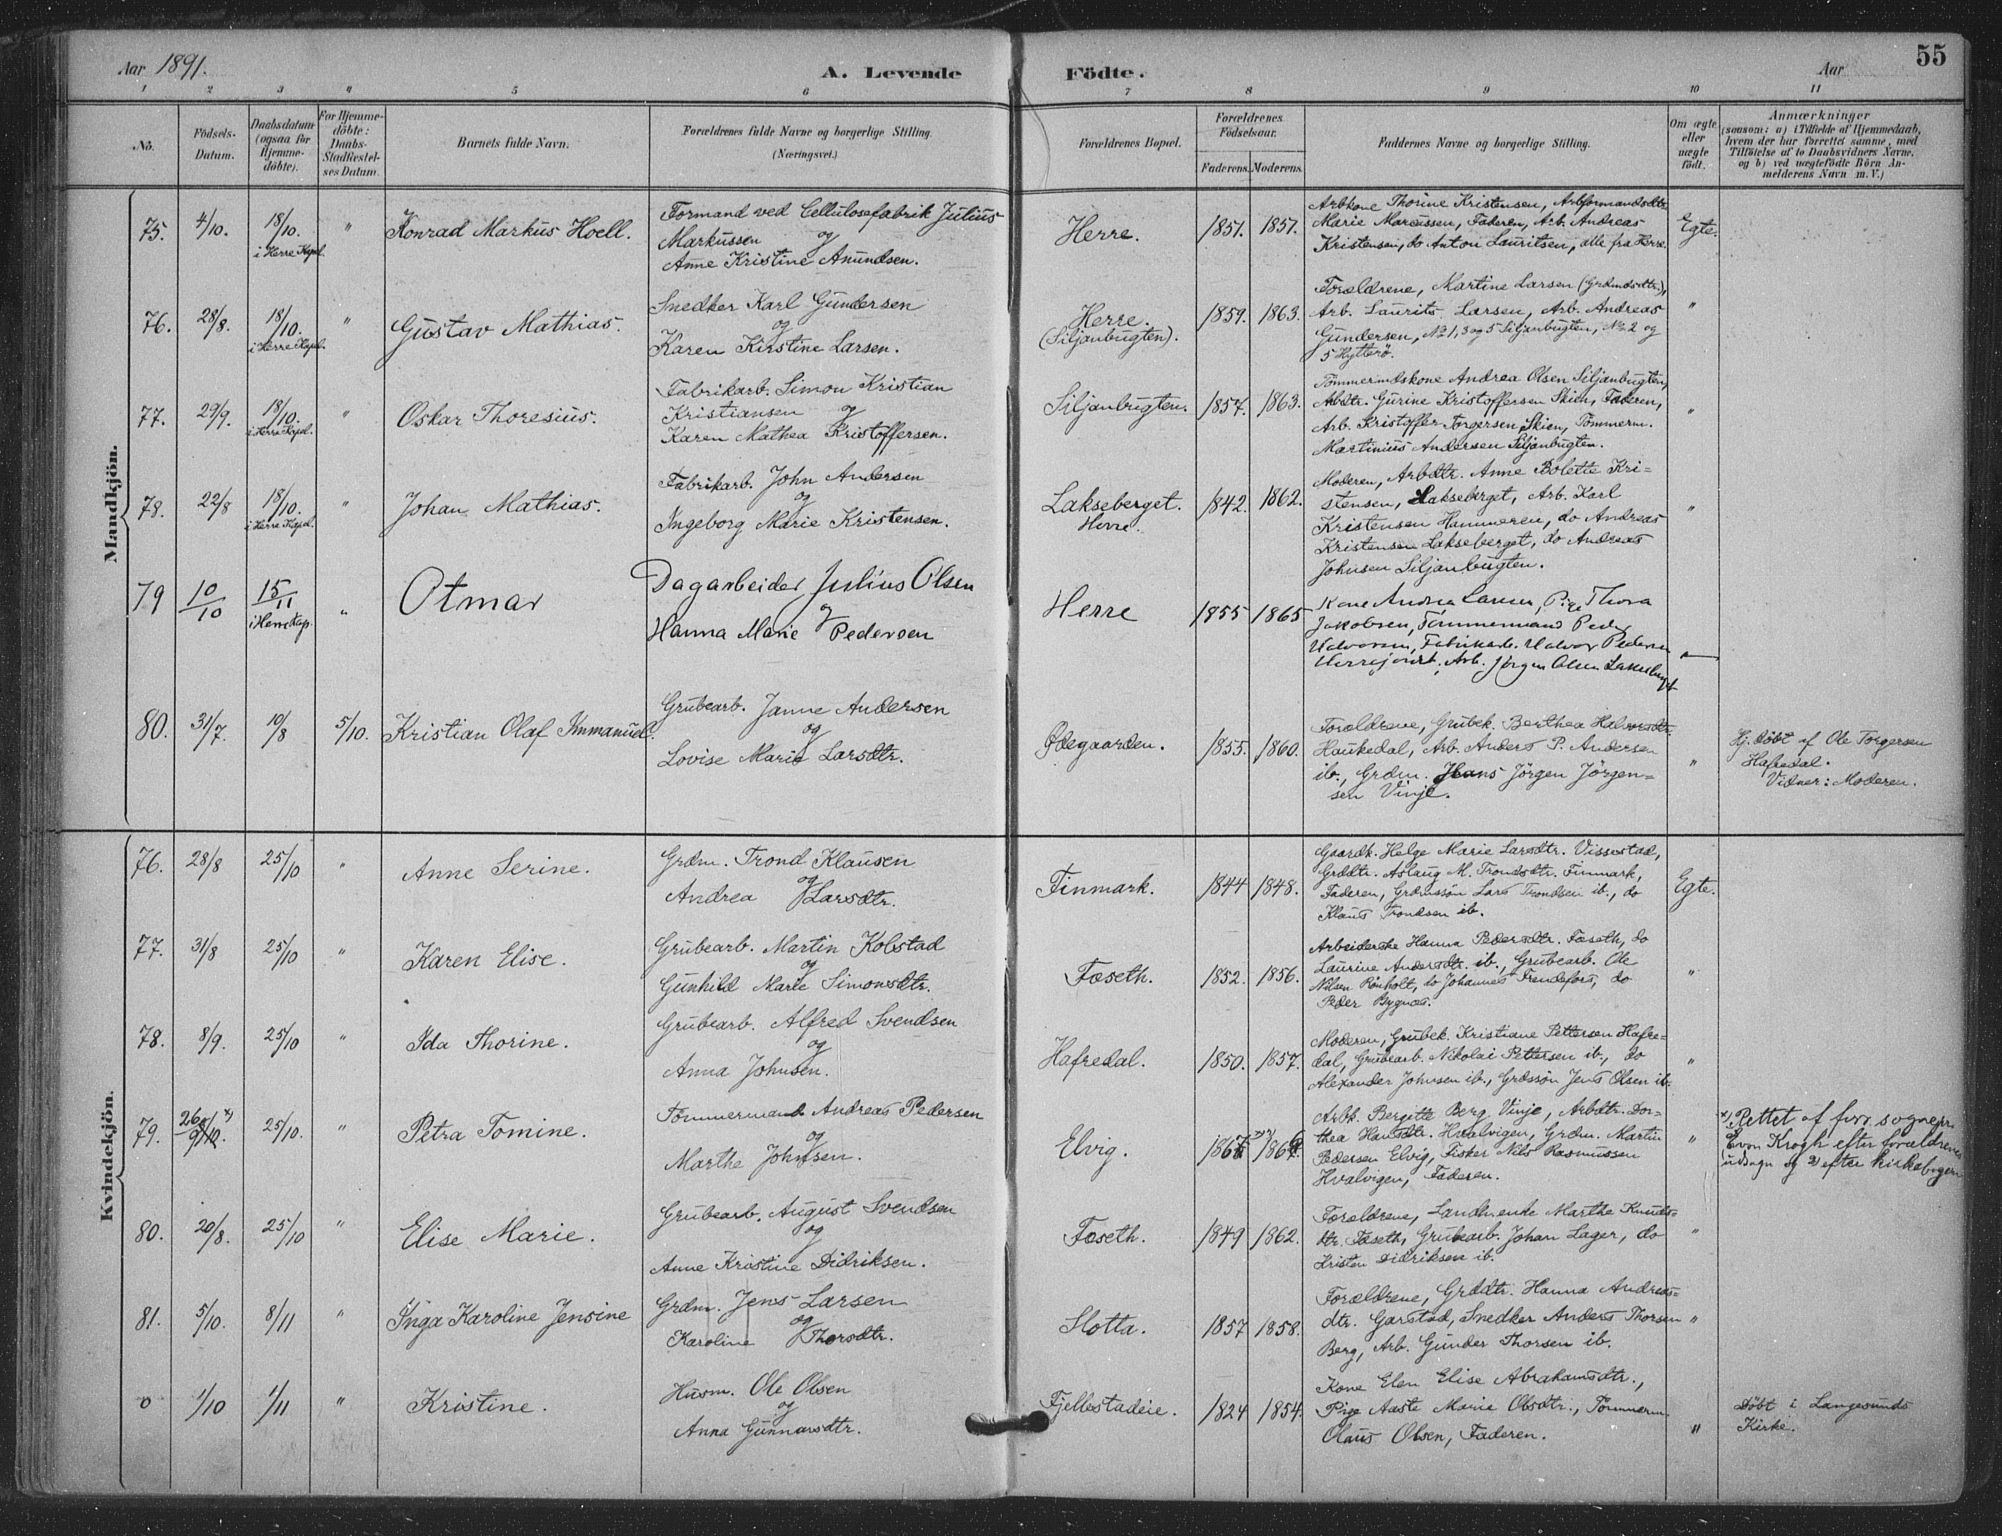 Aar 1891.
A. Levende Födte.
Aar
55
1 2 3 4 5 6 7 8 9 10 11
No.
Födsels-Datum.
Daabsdatum (ogsaa for Hjemme-döbte).
For Hjemme-döbte: Daabs-Stadfæstel-ses Datum.
Barnets fulde Navn.
Forældrenes fulde Navne og borgerlige Stilling. (Næringsvei.)
Forældrenes Bopæl.
Forældrenes Födselsaar.
Faderens. Moderens.
Faddernes Navne og borgerlige Stilling.
Om ægte eller uægte födt.
Anmærkninger
(saasom: a) i Tilfælde af Hjemmedaab, hvem der har forrettet samme, med Tilföielse af to Daabsvidners Navne, og b) ved uægtefödte Börn An-melderens Navn m. V.)
Mandkjön.
75. 4/10. 18/10. i Herre Kapel. " Konrad Markus Hoell.
Formand ved Cellulosefabrik Julius
Markussen og
Anne Kristine Amundsen.
Herre. 1851. 1857.
Arbkone Thorine Kristensen, Arbformandsdtr
Marie Marcussen, Faderen, Arb. Andreas
Kristensen, do Anton Lauritsen, alle fra Herre.
Egte.
76. 28/8. 18/10. i Herre Kapel. " Gustav Mathias.
Snedker Karl Gundersen
og
Karen Kirstine Larsen.
Herre. (Siljanbugten). 1859. 1863.
Forældrene, Martine Larsen (Grdmdsdtr),
Arb. Laurits Larsen, Arb. Andreas
Gundersen, No 1, 3 og 5 Siljanbugten, No 2 og
5 Hytterö.
"
77. 29/9. 18/10. i Herre Kapel. " Oskar Thoresius.
Fabrikarb. Simon Kristian
Kristiansen og
Karen Mathea Kristoffersen.
Siljanbugten. 1857. 1863.
Tömmermdskone Andrea Olsen Siljanbugten,
Arbdtr. Gurine Kristoffersen Skien, Faderen,
Arb. Kristoffer Torgersen Skien, Tömmerm.
Martinius Andersen Siljanbugten.
"
78. 22/8 18/10. i Herre Kapel. " Johan Mathias.
Fabrikarb. John Andersen
og
Ingeborg Marie Kristensen.
Lakseberget. Herre. 1842. 1862.
Moderen, Arbdtr. Anne Bolette Kri-
stensen, Lakseberget, Arb. Karl
Kristensen Hammeren, do Andreas
Kristensen Lakseberget, do Andreas
Johnsen Siljanbugten.
"
79 10/10 15/11 i Herre Kap. " Otmar
Dagarbeider Julius Olsen
og
Hanna Marie Pedersen
Herre 1855 1865
Kone Andrea Larsen, Pige Thora
Jakobsen, Tömmermand Peder
Halvorsen, Fabrikarb. Halvor Pedersen
Arb. Jörgen Olsen Lakseberget
80. 31/7. 10/8 5/10. Kristian Olaf Immanuel.
Grubearb. Janne Andersen
og
Lovise Marie Larsdtr.
Ødegaarden. 1855. 1860.
Forældrene, Grubek. Berthea Halvorsdtr.
Haukedal, Arb. Anders P. Andersen
ib., Grdm. Hans Jörgen Jörgen-
sen Vinje.
"
Hj.döbt af Ole Torgersen
Hafredal.
Vidner: Moderen.
Kvindekjön.
76. 28/8 25/10 " Anne Serine.
Grdm. Trond Klausen
og
Andrea Larsdtr.
Finmark. 1844 1848.
Gaardk. Helge Marie Larsdtr. Vissestad,
Grddtr. Aslaug M. Trondsdtr. Finmark,
Faderen, Grdmssön Lars Trondsen ib., do
Klaus Trondsen ib.
Egte.
77. 31/8 25/10 " Karen Elise.
Grubearb. Martin Kolstad
og
Gunhild Marie Simonsdtr.
Fæseth. 1852. 1856.
Arbeiderske Hanna Pedersdtr. Fæseth, do
Laurine Andersdtr. ib., Grubearb. Ole
Nilsen Rönholt, do Johannes Trendefors, do
Peder Bygnæs.
"
78. 8/9. 25/10 " Ida Thorine.
Grubearb. Alfred Svendsen
og
Anna Johnsen.
Hafredal. 1850. 1857.
Moderen, Grubek. Kristiane Pettersen Hafre-
dal, Grubearb. Nikolai Pettersen ib., do
Alexander Johnsen ib., Grdssön Jens Olsen ib.
"
79. 26/9 x) 25/10. " Petra Tomine.
Tömmermand Andreas Pedersen
og
Marthe Johnsen.
Elvig.
Arbk. Bergitte Berg Vinje, Arbdtr. Dor-
thea Hansdtr. Hvalvigen, Grdm. Martin
Pedersen Elvig, Fisker Nils Rasmussen
Hvalvigen, Faderen.
"
x) Rettet af forr. sognepr.
Even Krogh efter forældrenes
udsagn og efter kirkebogen
80. 20/8. 25/10 " Elise Marie.
Grubearb. August Svendsen
og
Anne Kristine Didriksen.
Fæseth. 1849 1862.
Forældrene, Landhende Marthe Knuds-
dtr. Fæseth, Grubearb. Johan Lager, do
Kristen Didriksen ib.
"
81. 5/10. 8/11 " Inga Karoline Jensine
Grdm. Jens Larsen
og
Karoline Thorsdtr.
Slotta. 1857 1858.
Forældrene, Grddtr. Hanna Andreas-
dtr. Garstad, Snedker Anders Thorsen
Berg, Arb. Gunder Thorsen ib.
"
0 1/10 1/11 " Kristine.
Husm. Ole Olsen
og
Anna Gunnarsdtr.
Fjellestadeie. 1824 1854.
Kone Elen Elise Abrahamsdtr.,
Pige Aaste Marie Olsdtr., Tömmerm.
Olaus Olsen, Faderen.
"
Döbt i Langesunds
Kirke.